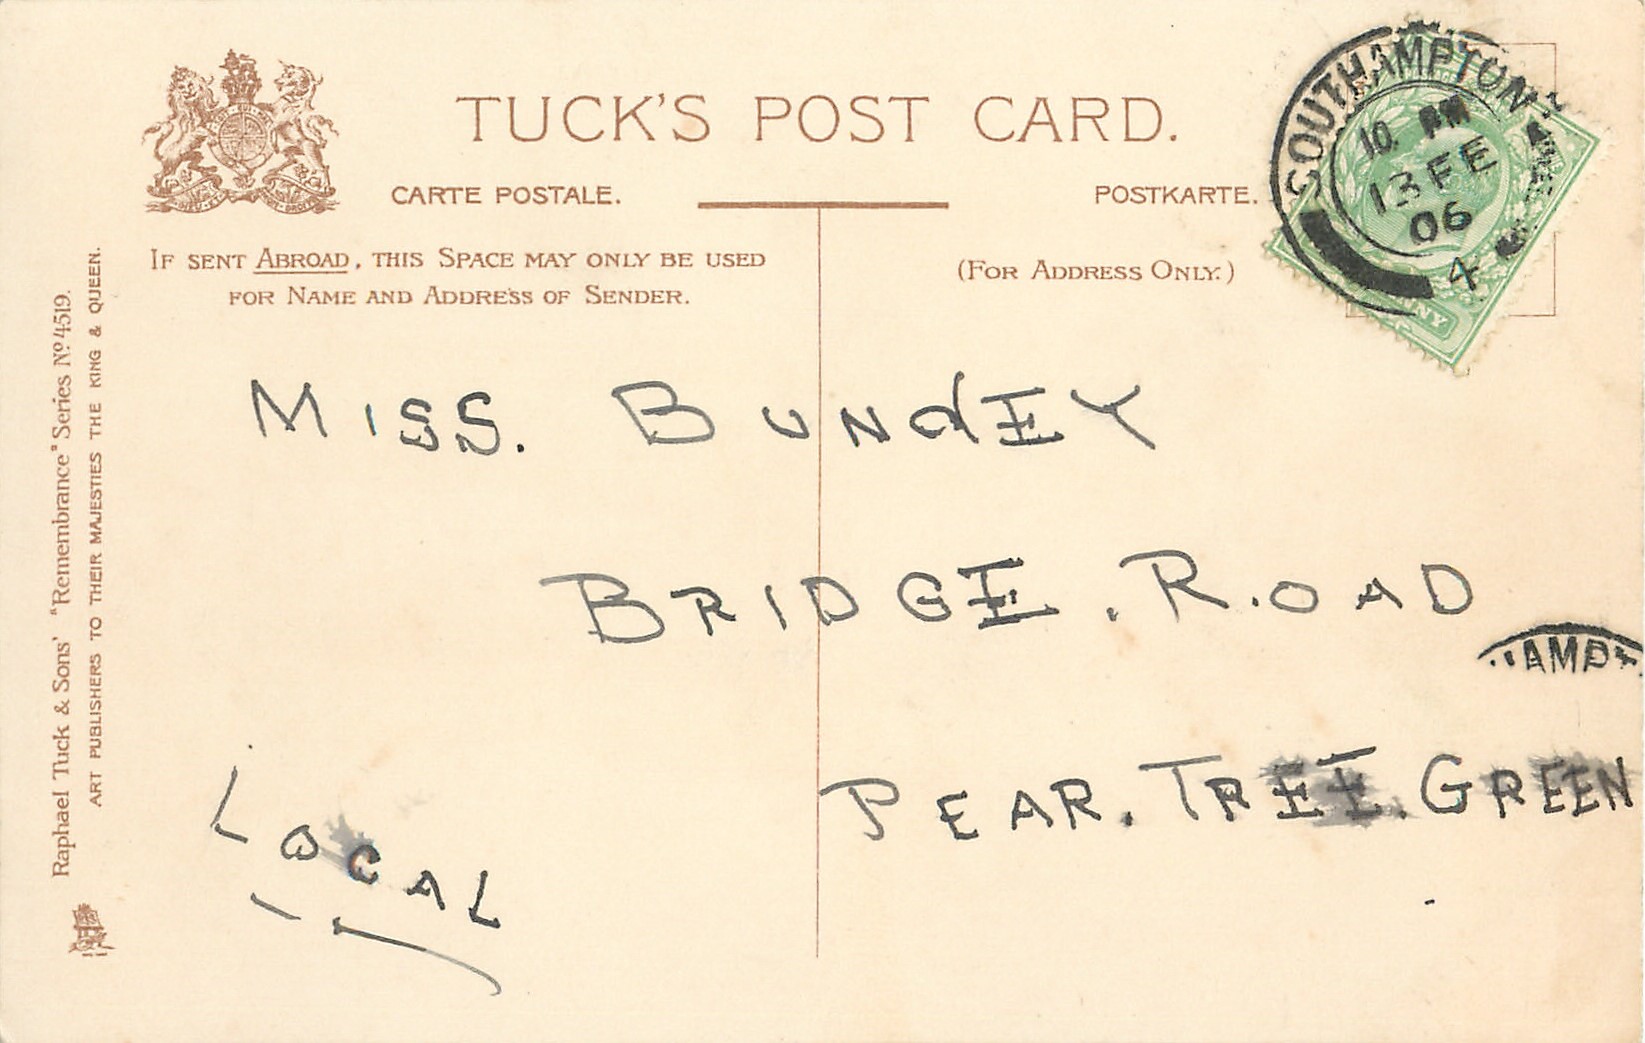 TUCK'S POST CARD.
CARTE POSTALE.
POSTKARTE.
IF SENT ABROAD, THIS SPACE MAY ONLY BE USED
FOR NAME AND ADDRESS OF SENDER.
(FOR ADDRESS ONLY.)
SOUTHAMPTON
10. PM
13 FE
06
4
MISS. BUNDEY
BRIDGE. ROAD
AMP
PEAR. TREE. GREEN
LOCAL
Raphael Tuck & Sons' "Remembrance" Series No. 4519.
ART PUBLISHERS TO THEIR MAJESTIES THE KING & QUEEN.